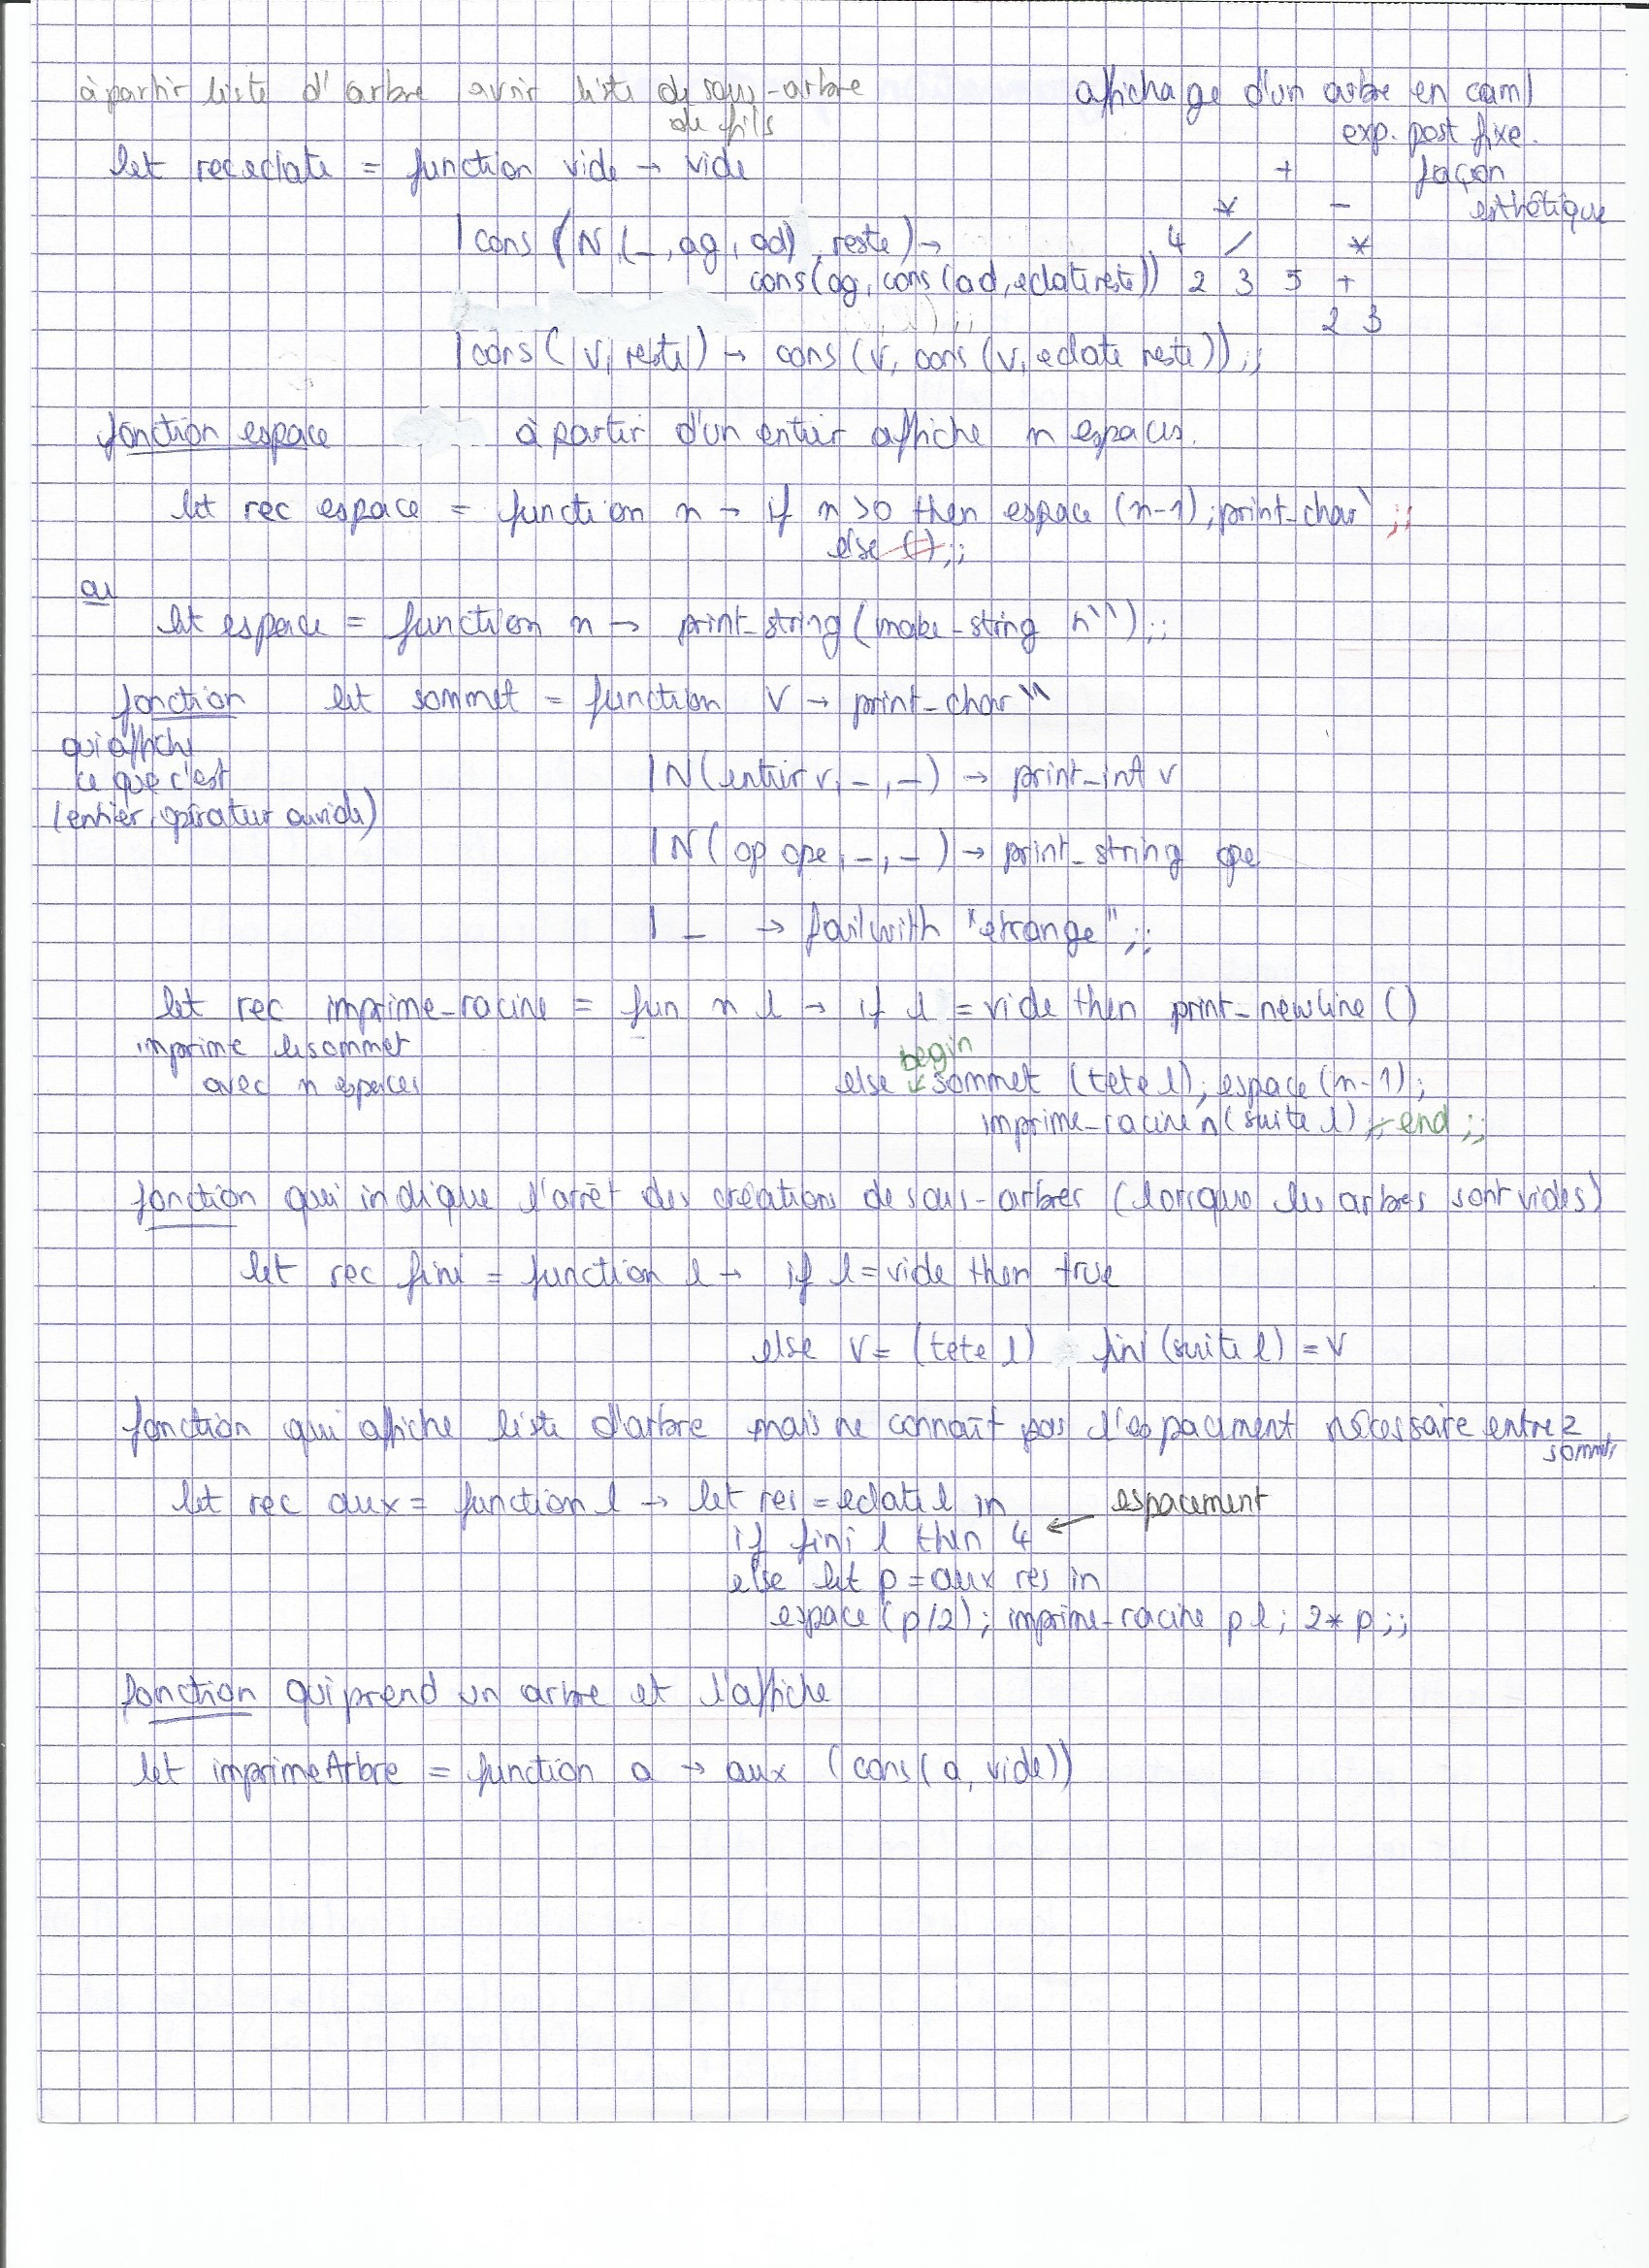 à partir liste d'arbre avoir liste de sous-arbre
de fils
affichage d'un arbre en caml
exp. post fixe.
façon
esthétique
+
* -
4 / *
2 3 5 +
2 3
let rec eclate = function vide → vide
| cons (N (_, ag, ad), reste) →
cons(ag, cons(ad, eclate reste))
| cons( V, reste) → cons (V, cons (V, eclate reste));;
fonction espace à partir d'un entier affiche n espaces.
let rec espace = function n → if n>0 then espace (n-1); print_char ` ;;
else ();;
ou
let espace = function n → print_string (make_string n ``);;
fonction let sommet = function V → print_char ``
qui affiche
ce que c'est
(entier, opérateur ou vide)
| N(entier v, _, _) → print_int v
| N( op ope, _, _) → print_string ope
| _ → failwith "etrange";;
let rec imprime_racine = fun n l → if l = vide then print_newline ()
imprime les sommet
avec n espaces
begin
else sommet (tete l); espace (n-1);
imprime_racine n (suite l) ;; end ;;
fonction qui indique l'arrêt des créations de sous-arbres (lorsque les arbres sont vides)
let rec fini = function l → if l = vide then true
else V = (tete l) fini (suite l) = V
fonction qui affiche liste d'arbre mais ne connaît pas l'espacement nécessaire entre 2
sommets
let rec aux = function l → let res = eclate l in
espacement
if fini l then 4 ←
else let p = aux res in
espace (p/2); imprime_racine p l; 2* p;;
fonction qui prend un arbre et l'affiche
let imprimeArbre = function a → aux (cons( a, vide))